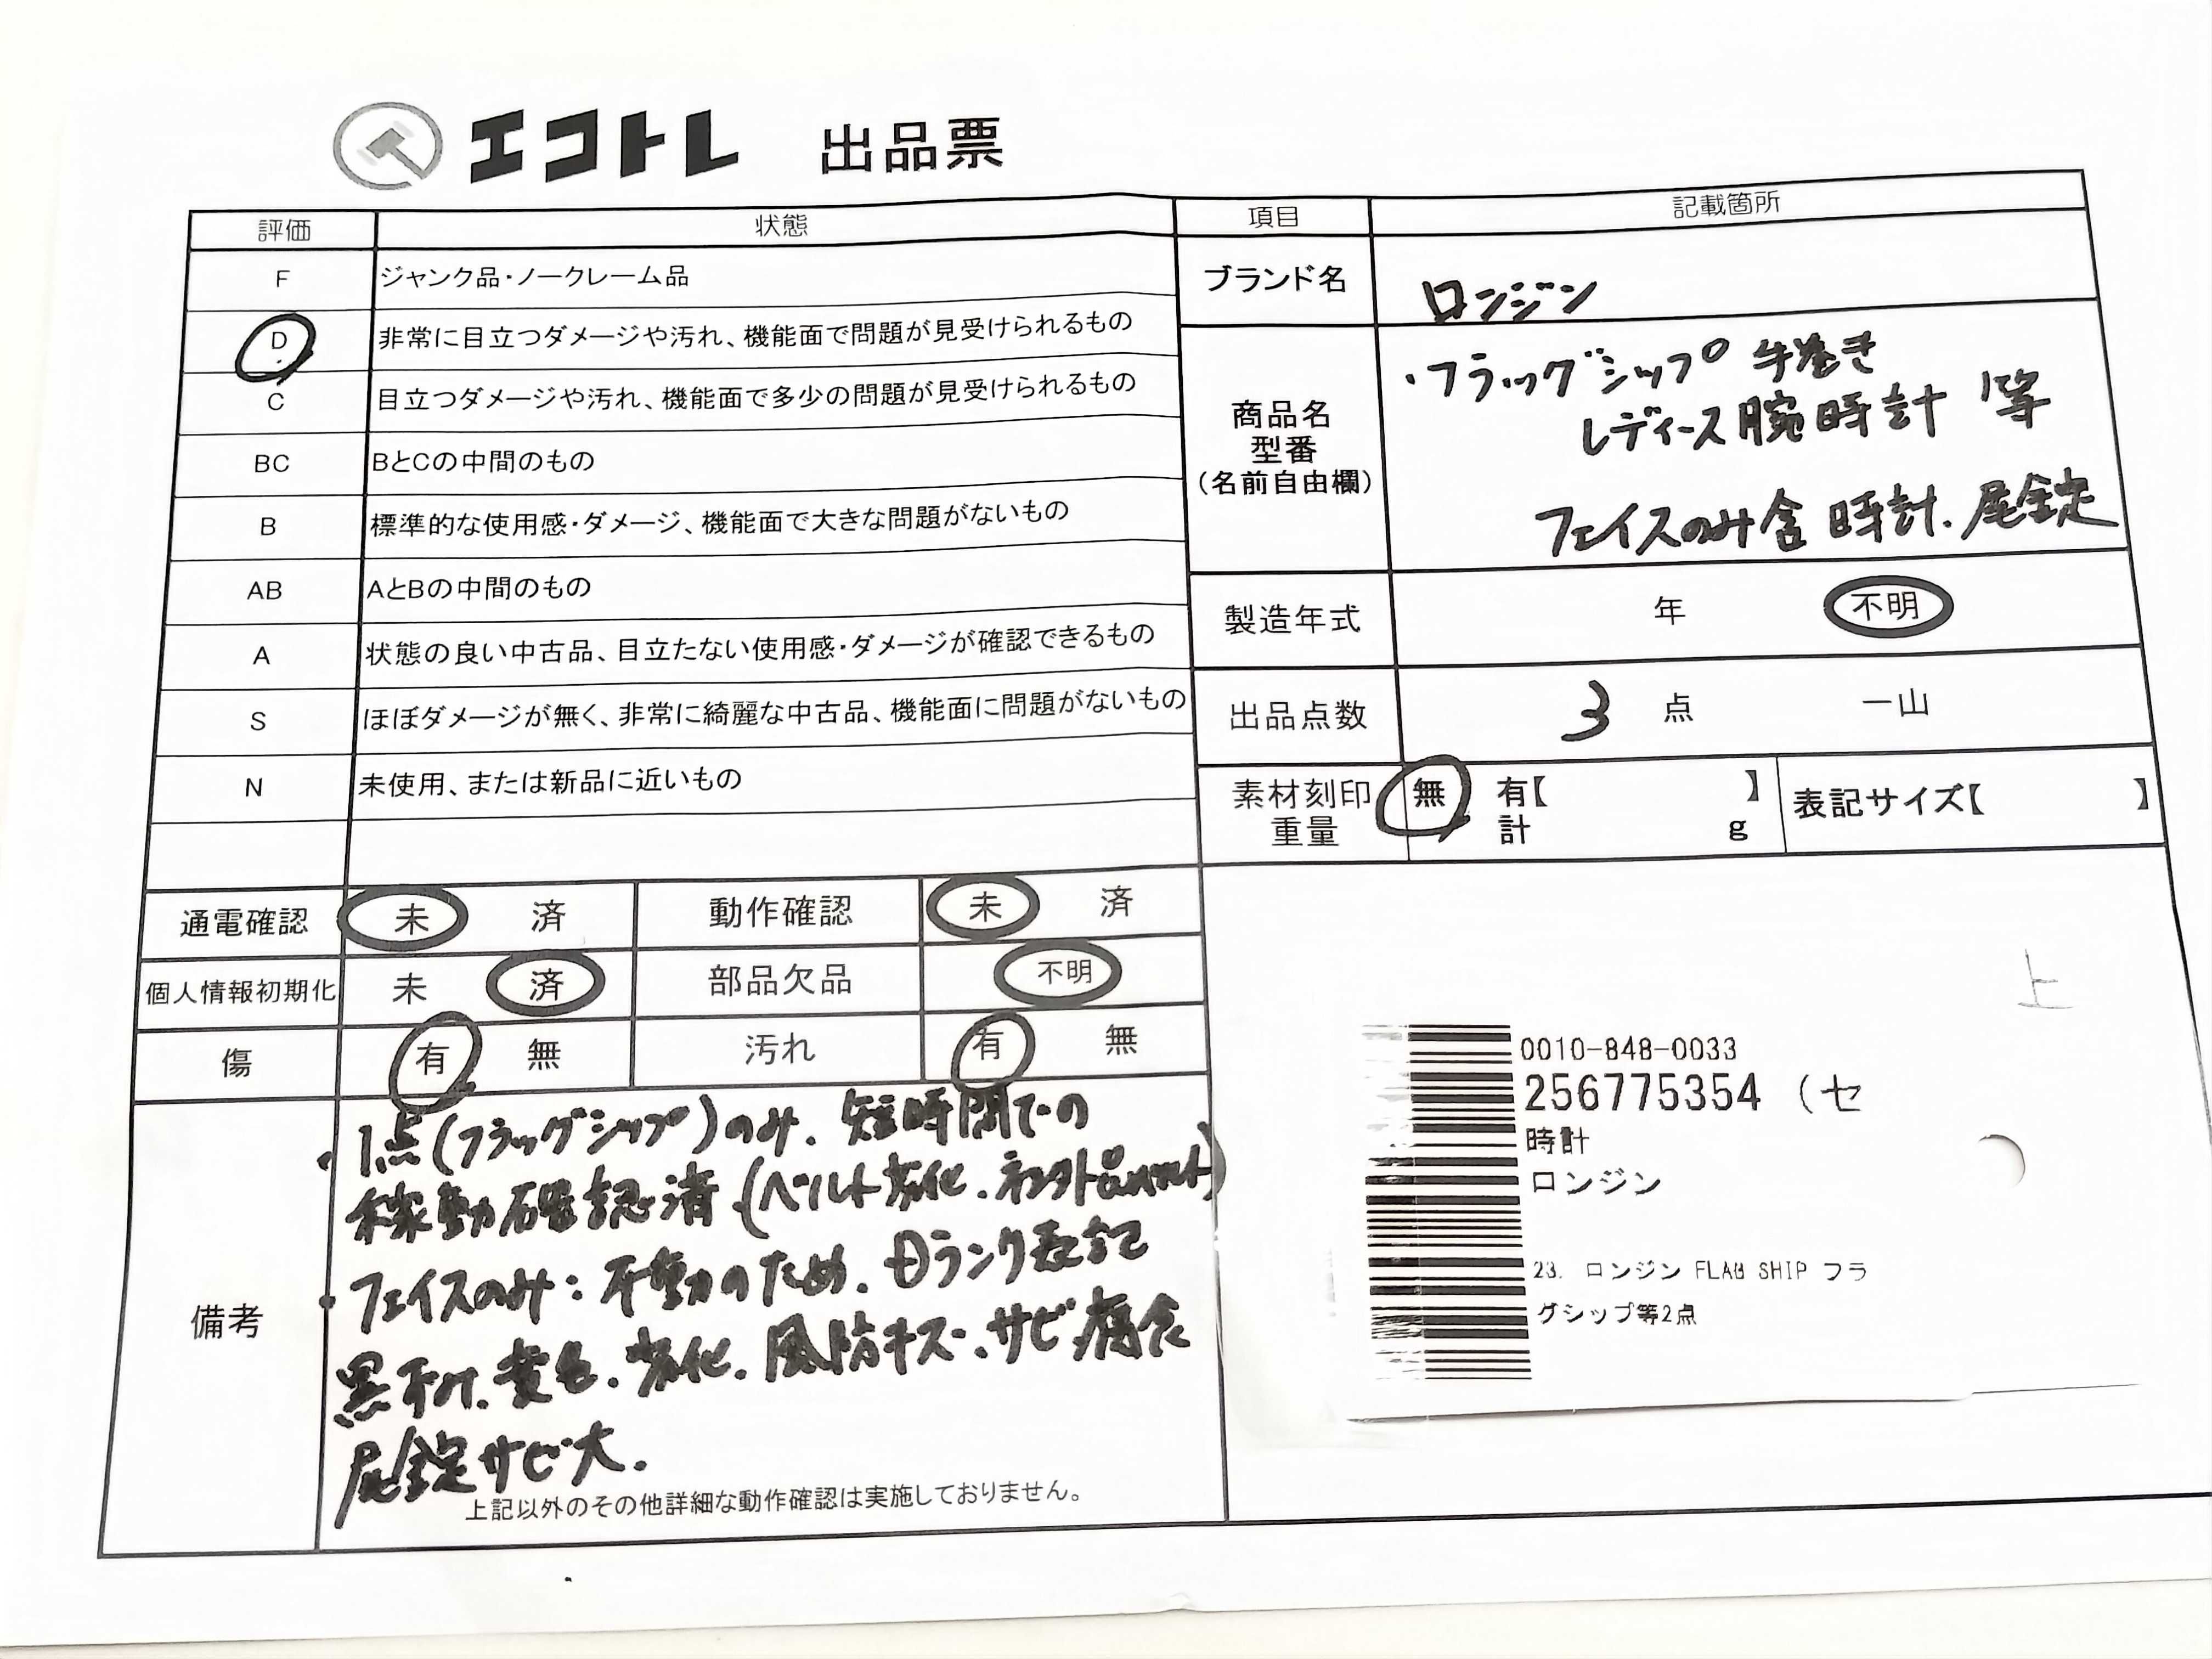 エコトレ 出品票
評価 状態
F ジャンク品・ノークレーム品
D 非常に目立つダメージや汚れ、機能面で問題が見受けられるもの
C 目立つダメージや汚れ、機能面で多少の問題が見受けられるもの
BC BとCの中間のもの
B 標準的な使用感・ダメージ、機能面で大きな問題がないもの
AB AとBの中間のもの
A 状態の良い中古品、目立たない使用感・ダメージが確認できるもの
S ほぼダメージが無く、非常に綺麗な中古品、機能面に問題がないもの
N 未使用、または新品に近いもの
項目 記載箇所
ブランド名 ロンジン
商品名
型番
(名前自由欄)
・フラッグシップ 手巻き
レディース腕時計 等
フェイスのみ含 時計、尾錠
製造年式 年 不明
出品点数 3 点 一山
素材刻印 無 有【 】 表記サイズ【 】
重量 計 g
通電確認 未 済 動作確認 未 済
個人情報初期化 未 済 部品欠品 不明
傷 有 無 汚れ 有 無
備考
・1点(フラッグシップ)のみ、短時間での
稼動確認済(ベルト劣化、
・フェイスのみ：不動のため、Dランク表記
黒ずみ、変色、劣化、風防キズ、サビ腐食
尾錠サビ大。
上記以外のその他詳細な動作確認は実施しておりません。
上
0010-848-0033
256775354 (セ
時計
ロンジン
23. ロンジン FLAG SHIP フラ
グシップ等2点